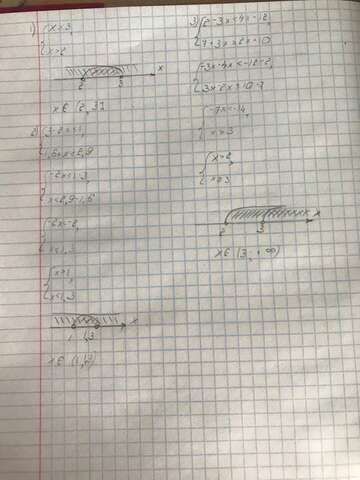 1) { x ≤ 3,
{ x > 2
2 3 x
x ∈ (2, 3]
2) { 3 - 2x < 1,
{ 1,6 + x < 2,9
{ -2x < 1 - 3,
{ x < 2,9 - 1,6
{ -2x < -2,
{ x < 1,3
{ x > 1,
{ x < 1,3
1 1,3 x
x ∈ (1; 1,3)
3) { 2 - 3x < 4x - 12,
{ 7 + 3x > 2x + 10
{ -3x - 4x < -12 - 2,
{ 3x - 2x > 10 - 7
{ -7x < -14,
{ x > 3
{ x > 2,
{ x > 3
2 3 x
x ∈ (3, +∞)